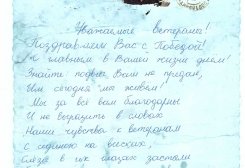 Уважаемые ветераны!
Поздравляем Вас с Победой!
И главным в Вашей жизни днём!
Знайте подвиг Ваш не предан,
Им сегодня мы живём!
Мы за всё вам благодарны
И не выразить в словах
Наши чувства к ветеранам
с сединою на висках,
слёзы в их глазах застыли